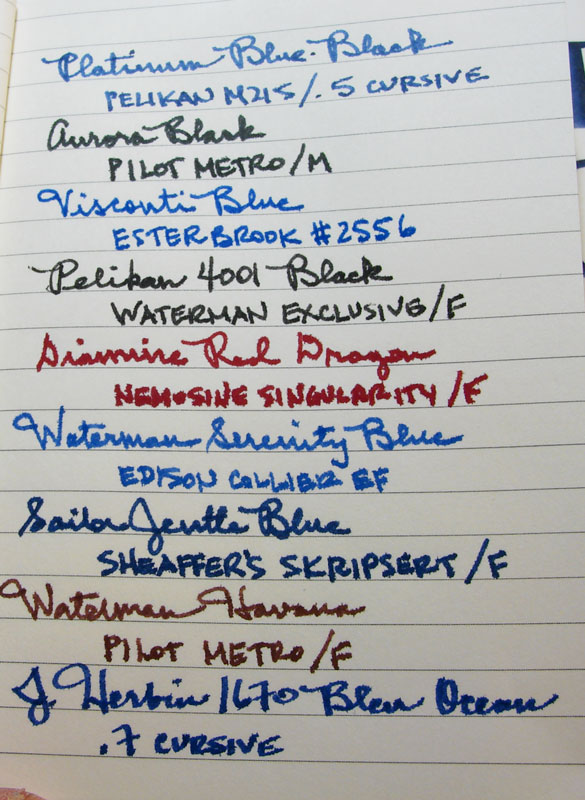 Platinum Blue-Black
PELIKAN M215/.5 CURSIVE
Aurora Black
PILOT METRO/M
Visconti Blue
ESTERBROOK #2556
Pelikan 4001 Black
WATERMAN EXCLUSIVE/F
Diamine Red Dragon
NEMOSINE SINGULARITY /F
Waterman Serenity Blue
EDISON COLLIER EF
Sailor Jentle Blue
SHEAFFER'S SKRIPSERT /F
Waterman Havana
PILOT METRO /F
J Herbin 1670 Bleu Ocean
.7 CURSIVE